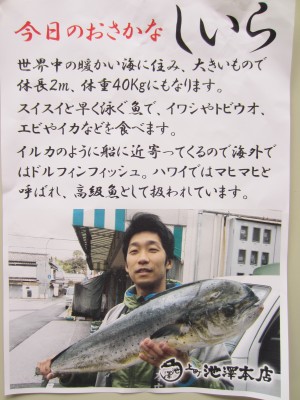 今日のおさかな しいら
世界中の暖かい海に住み、大きいもので
体長2m、体重40Kgにもなります。
スイスイと早く泳ぐ魚で、イワシやトビウオ、
エビやイカなどを食べます。
イルカのように船に近寄ってくるので海外で
はドルフィンフィッシュ。ハワイではマヒマヒと
呼ばれ、高級魚として扱われています。
池澤本店